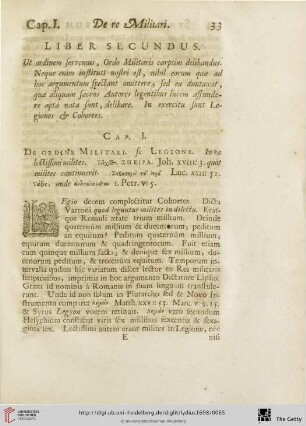 Cap. I. De re Militari. 33
LIBER SECUNDUS.
Ut ordinem servemus, Ordo Militaris carptim delibandus.
Neque enim instituti nostri est, nihil eorum quæ ad
hoc argumentum spectant omittere, sed ea duntaxat,
quæ aliquam sacros Autores legentibus lucem affunde-
re apta nata sunt, delibare. In exercitu sunt Le-
giones & Cohortes.
CAP. I.
DE ORDINE MILITARI, sc. LEGIONE.
lectissimi milites. ΣΠΕΙΡΑ. Joh. XVIII: 3. quot
milites continuerit. Luc. XXII: 52.
unde 1. Petr. V: 5.
LEgio decem complectitur Cohortes. Dicta
Varroni quod leguntur milites in delectu. Erat-
que Romuli ætate trium millium. Deinde
quaternûm millium & ducentorum; peditum
an equitum? Peditum quaternûm millium,
equitum ducentorum & quadringentorum. Fuit etiam
cum quinque millium facta, & denique sex millium, du-
centorum peditum, & trecentûm equitum. Temporum in-
tervallis quibus hic variatum disert lector ex Rei militaris
scriptoribus, imprimis in hoc argumento Dictatore Lipsio.
Græci id nominis à Romanis in suam linguam transtule-
runt. Unde id non solum in Plutarcho sed & Novo In-
strumento comparet λεγεών Matth. XXVI: 53. Marc. V: 9. 15.
& Syrus Legion vocem retinuit. λεγεών vero secundum
Hesychium constabat viris sex millibus sexcentis & sexa-
ginta sex. Lectissimi autem erant milites in Legione, nec
E nisi
http://digi.ub.uni-heidelberg.de/diglit/lydius1698/0065
© Universitätsbibliothek Heidelberg
UNIVERSITÄTS-
BIBLIOTHEK
HEIDELBERG
The Getty